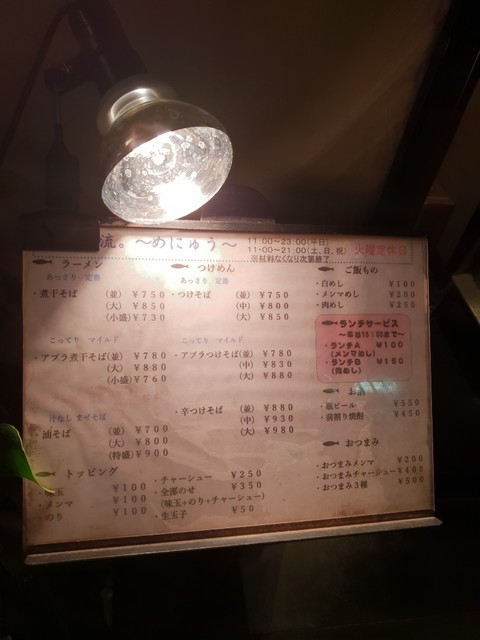 流。～めにゅう～
11:00~23:00(平日)
11:00~21:00(土、日、祝)
※材料なくなり次第終了
火曜定休日
ラーメン
あっさり 定番
・煮干そば (並) ¥750
(大) ¥850
(小盛) ¥730
こってり マイルド
・アブラ煮干そば (並) ¥780
(大) ¥880
(小盛) ¥760
汁なし まぜそば
・油そば (並) ¥700
(大) ¥800
(特盛) ¥900
つけめん
あっさり 定番
・つけそば (並) ¥750
(中) ¥800
(大) ¥850
こってり マイルド
・アブラつけそば (並) ¥780
(中) ¥830
(大) ¥880
・辛つけそば (並) ¥880
(中) ¥930
(大) ¥980
トッピング
玉 ¥100
・メンマ ¥100
のり ¥100
・チャーシュー ¥250
・全部のせ ¥350
(味玉+のり+チャーシュー)
・生玉子 ¥50
ご飯もの
・白めし ¥100
・メンマめし ¥200
・肉めし ¥250
ランチサービス
～平日15:00まで～
・ランチA ¥100
(メンマめし)
・ランチB ¥150
(肉めし)
お酒
・瓶ビール ¥550
・前割り焼酎 ¥450
おつまみ
・おつまみメンマ ¥200
・おつまみチャーシュー ¥400
・おつまみ3種 ¥500